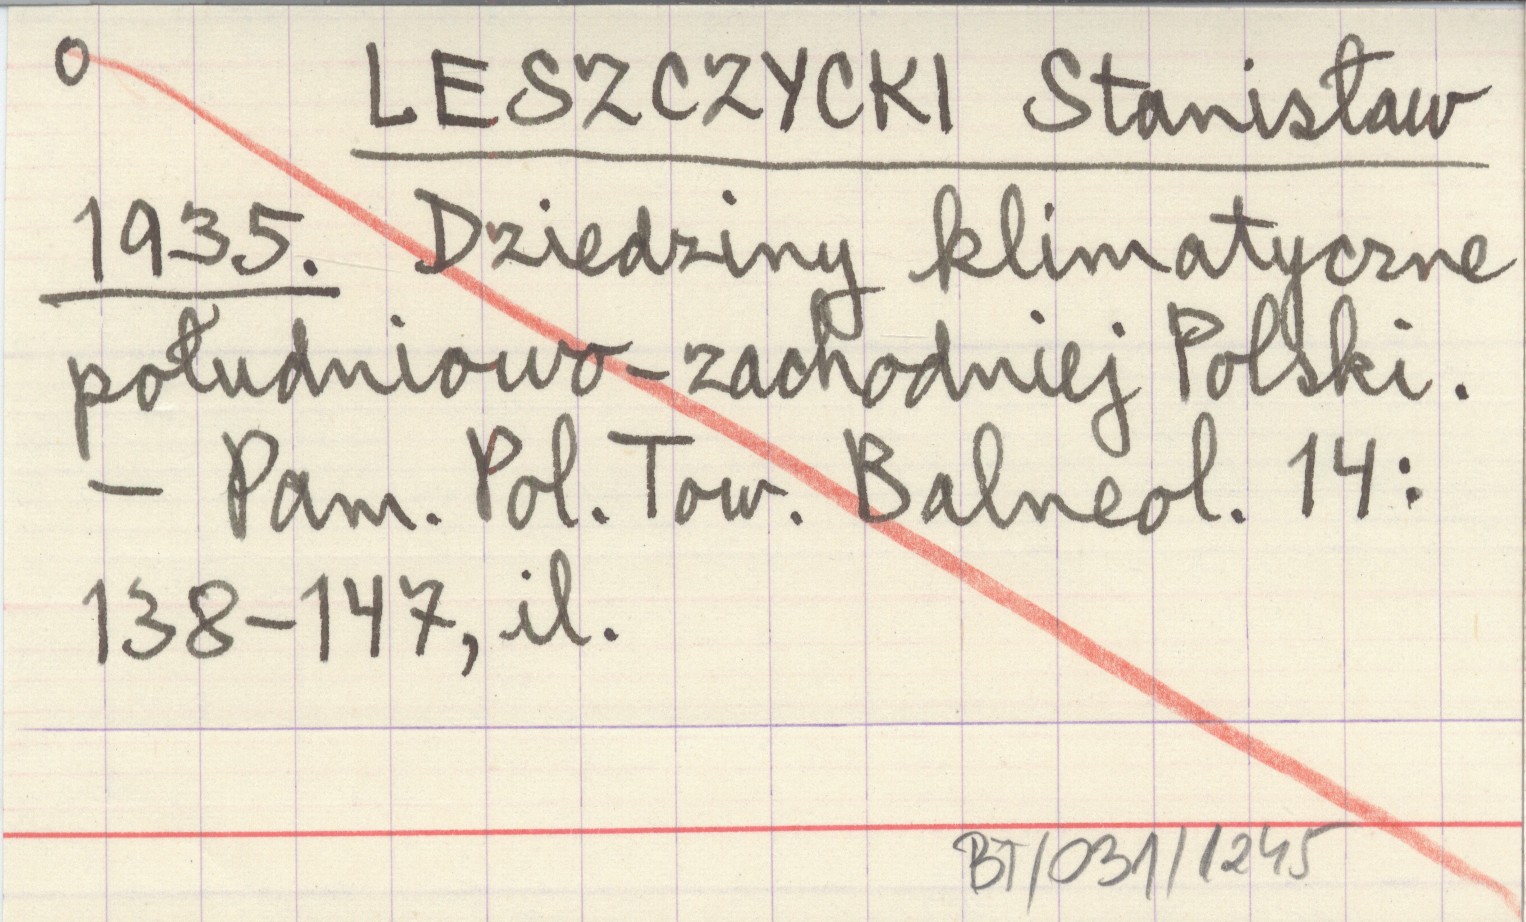 O LESZCZYCKI Stanisław
1935. Dziedziny klimatyczne
południowo-zachodniej Polski.
- Pam. Pol. Tow. Balneol. 14:
138-147, il.
BT/031/1245